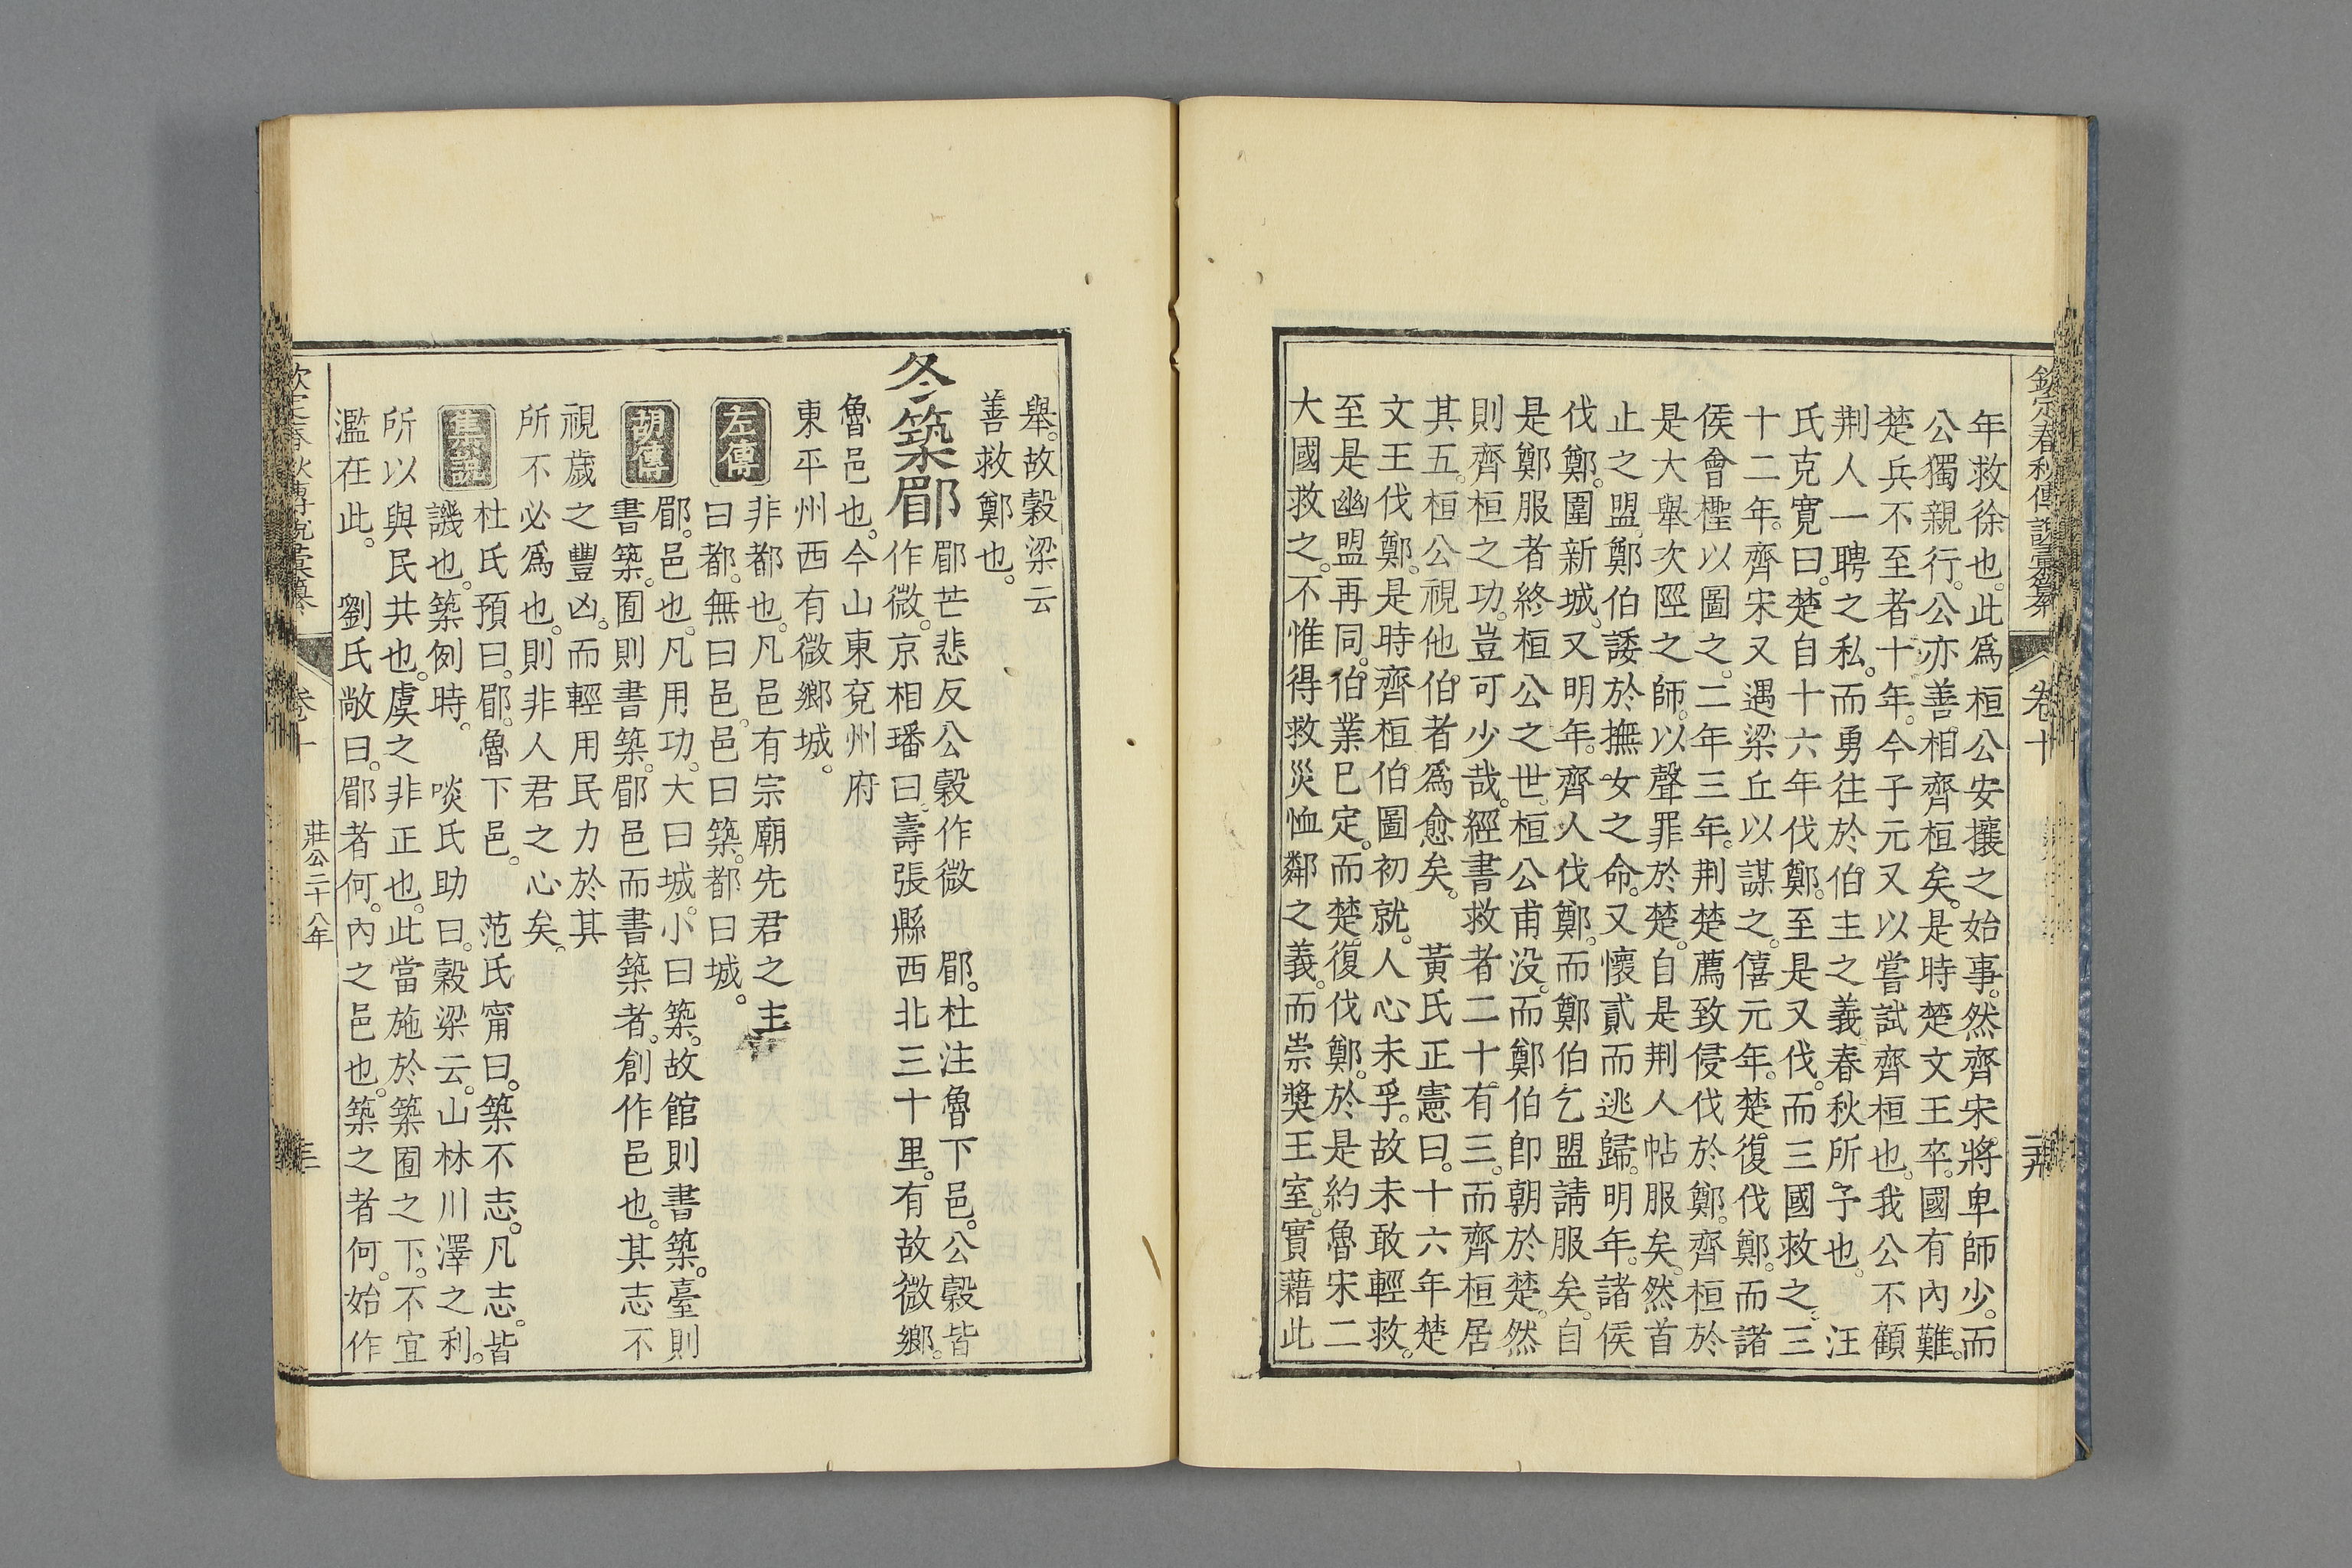 欽定春秋傳說彙纂 卷十
年救徐也。此爲桓公安攘之始事。然齊宋將卑師少。而
公獨親行。公亦善相齊桓矣。是時楚文王卒。國有內難。
楚兵不至者十年。今子元又以嘗試齊桓也。我公不顧
荆人一聘之私。而勇往於伯主之義。春秋所予也。 汪
氏克寬曰。楚自十六年伐鄭。至是又伐。而三國救之。三
十二年。齊宋又遇梁丘以謀之。僖元年。楚復伐鄭。而諸
侯會檉以圖之。二年三年。荆楚薦致侵伐於鄭。齊桓於
是大舉次陘之師。以聲罪於楚。自是荆人帖服矣。然首
止之盟。鄭伯諉於撫女之命。又懷貳而逃歸。明年。諸侯
伐鄭。圍新城。又明年。齊人伐鄭。而鄭伯乞盟請服矣。自
是鄭服者終桓公之世。桓公甫沒。而鄭伯卽朝於楚。然
則齊桓之功。豈可少哉。經書救者二十有三。而齊桓居
其五。桓公視他伯者爲愈矣。 黃氏正憲曰。十六年楚
文王伐鄭。是時齊桓伯圖初就。人心未孚。故未敢輕救。
至是幽盟再同。伯業已定。而楚復伐鄭。於是約魯宋二
大國救之。不惟得救災恤鄰之義。而崇奬王室。實藉此
舉。故穀梁云
善救鄭也。
冬築郿 郿芒悲反公穀作微 郿。杜注魯下邑。公穀皆
作微。京相璠曰。壽張縣西北三十里。有故微鄉。
魯邑也。今山東兗州府
東平州西有微鄉城。
左傳 非都也。凡邑有宗廟先君之主
曰都。無曰邑。邑曰築。都曰城。
郿。邑也。凡用功。大曰城。小曰築。故館則書築。臺則
胡傳 書築。囿則書築。郿邑而書築者。創作邑也。其志不
視歲之豐凶。而輕用民力於其
所不必爲也。則非人君之心矣。
集說 杜氏預曰。郿。魯下邑。 范氏甯曰。築不志。凡志。皆
譏也。築例時。 啖氏助曰。穀梁云。山林川澤之利。
所以與民共也。虞之非正也。此當施於築囿之下。不宜
濫在此。 劉氏敞曰。郿者何。內之邑也。築之者何。始作
莊公二十八年